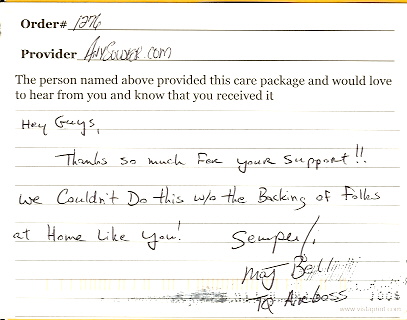 Order# 1276
Provider AnySoldier.com
The person named above provided this care package and would love
to hear from you and know that you received it
Hey Guys,
Thanks so much For your Support!!
we Couldn't Do this w/o the Backing of Folks
at Home Like You!
Semper/,
Maj Bell
TQ Airboss